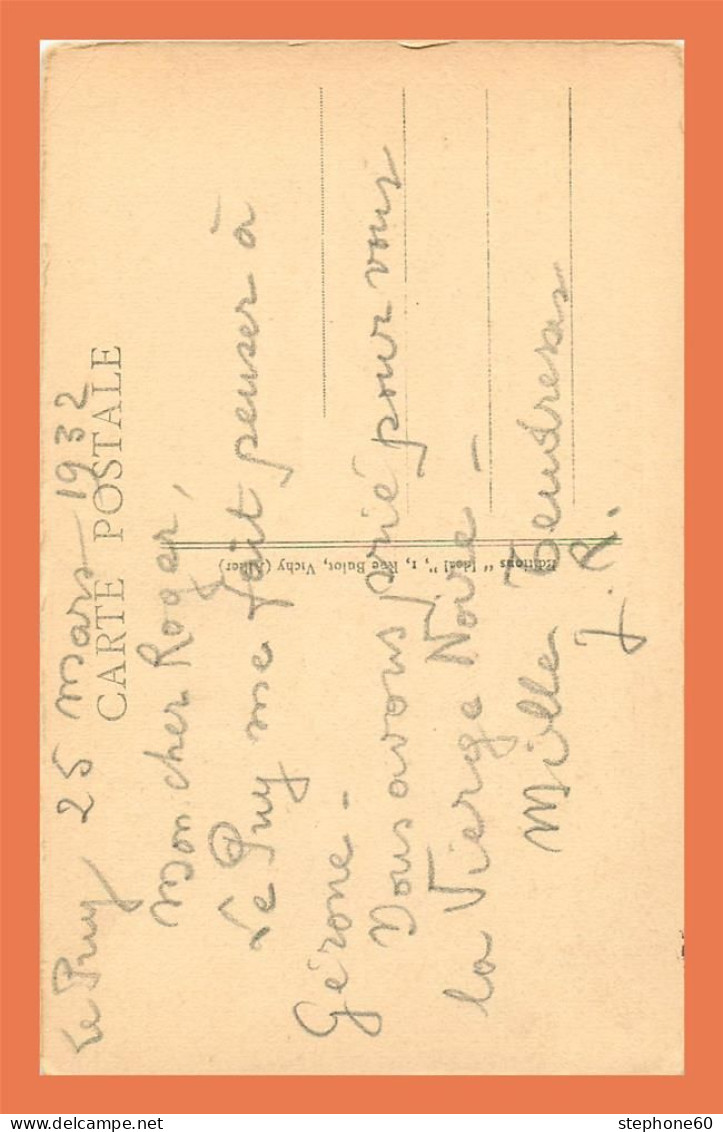 Le Puy 25 mars 1932
CARTE POSTALE
Mon cher Roger,
Le Puy me fait penser à
Gérone -
Nous avons prié pour vous
la Vierge Noire -
Mille Tendresses
J. R.
Editions "Ideal", 1, Rue Bulot, Vichy (Allier)
stephone60